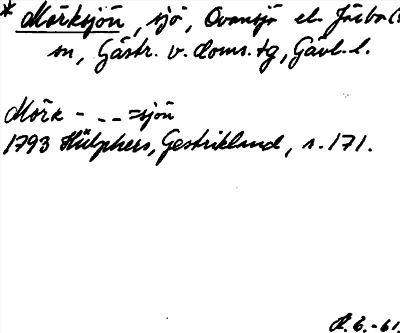 * Mörksjön, sjö, Ovansjö el. Järbo
sn, Gästr. v. doms. tg, Gävl. l.
Mörk - - - =sjön
1793 Hülphers, Gestrikland, s. 171.
-61.